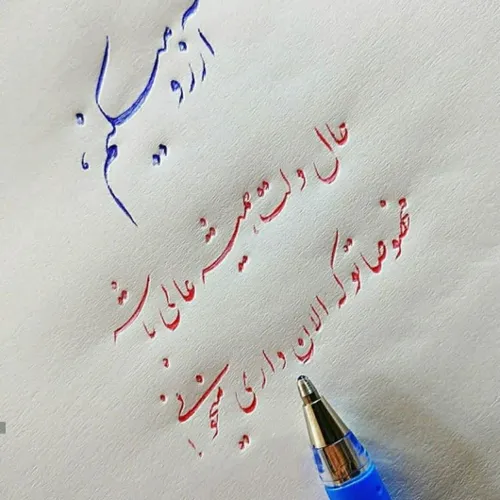 آرزو میکنم،
حال دلت همیشه عالی باشه
مخصوصا تو که الان داری میخونی!